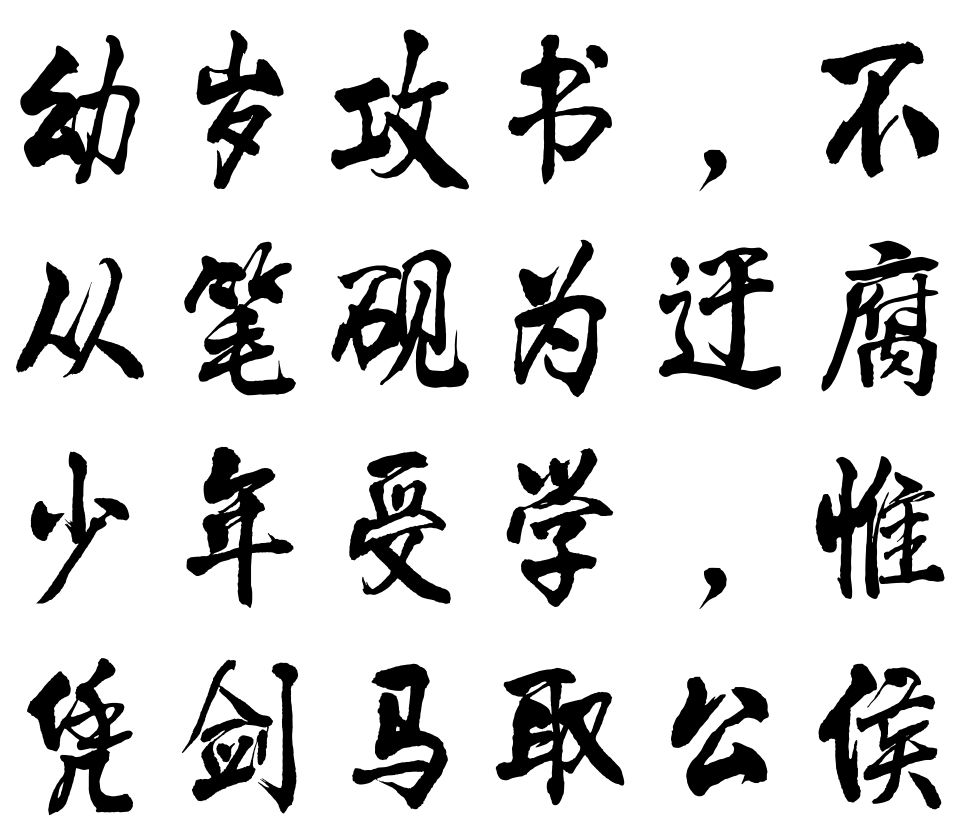 幼岁攻书，不
从笔砚为迂腐
少年受学，惟
凭剑马取公侯